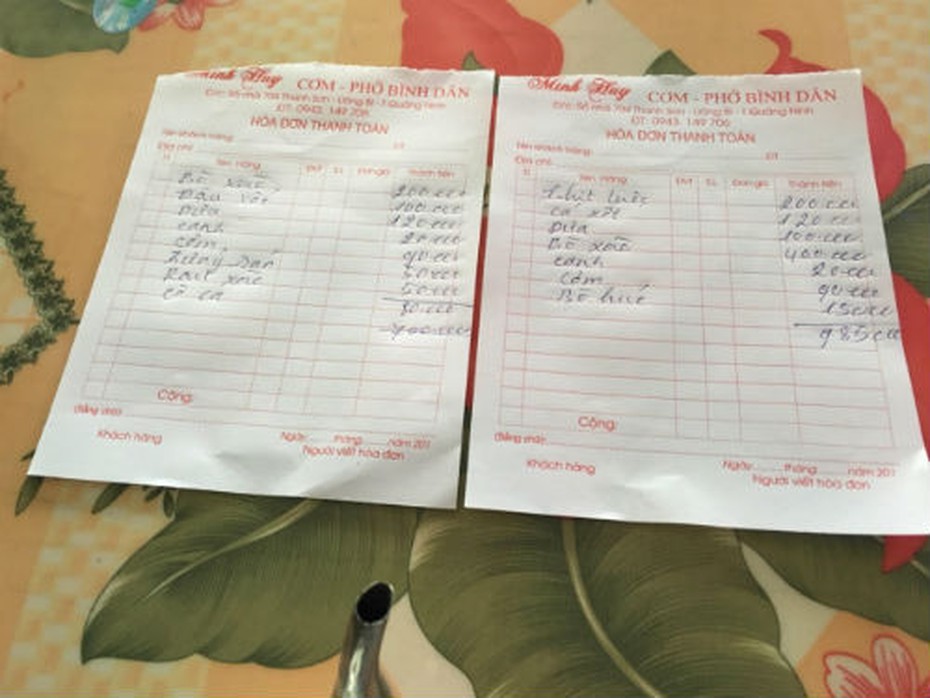 Minh Huy CƠM - PHỞ BÌNH DÂN
Đ/c: Số nhà 704 Thanh Sơn - Uông Bí - T.Quảng Ninh
ĐT: 0943. 149 706
HÓA ĐƠN THANH TOÁN
Tên khách hàng: ĐT
Địa chỉ:
Tt Tên hàng ĐVT S.L Đơn giá Thành tiền
Bò xào 200.000
Đậu 100.000
Dưa 120.000
canh 20.000
cơm 90.000
Rau xào
cà
Cộng:
(Bằng chữ)
Khách hàng
Ngày tháng năm 201
Người viết hóa đơn
Minh Huy CƠM - PHỞ BÌNH DÂN
Đ/c: Số nhà 704 Thanh Sơn - Uông Bí - T.Quảng Ninh
ĐT: 0943. 149 706
HÓA ĐƠN THANH TOÁN
Tên khách hàng: ĐT
Địa chỉ:
Tt Tên hàng ĐVT S.L Đơn giá Thành tiền
Thịt luộc 200.000
cá xốt 120.000
Dưa 100.000
Bò xào 400.000
canh 20.000
Cơm 90.000
Bò húc 15.000
985.000
Cộng:
(Bằng chữ)
Khách hàng
Ngày tháng năm 201
Người viết hóa đơn